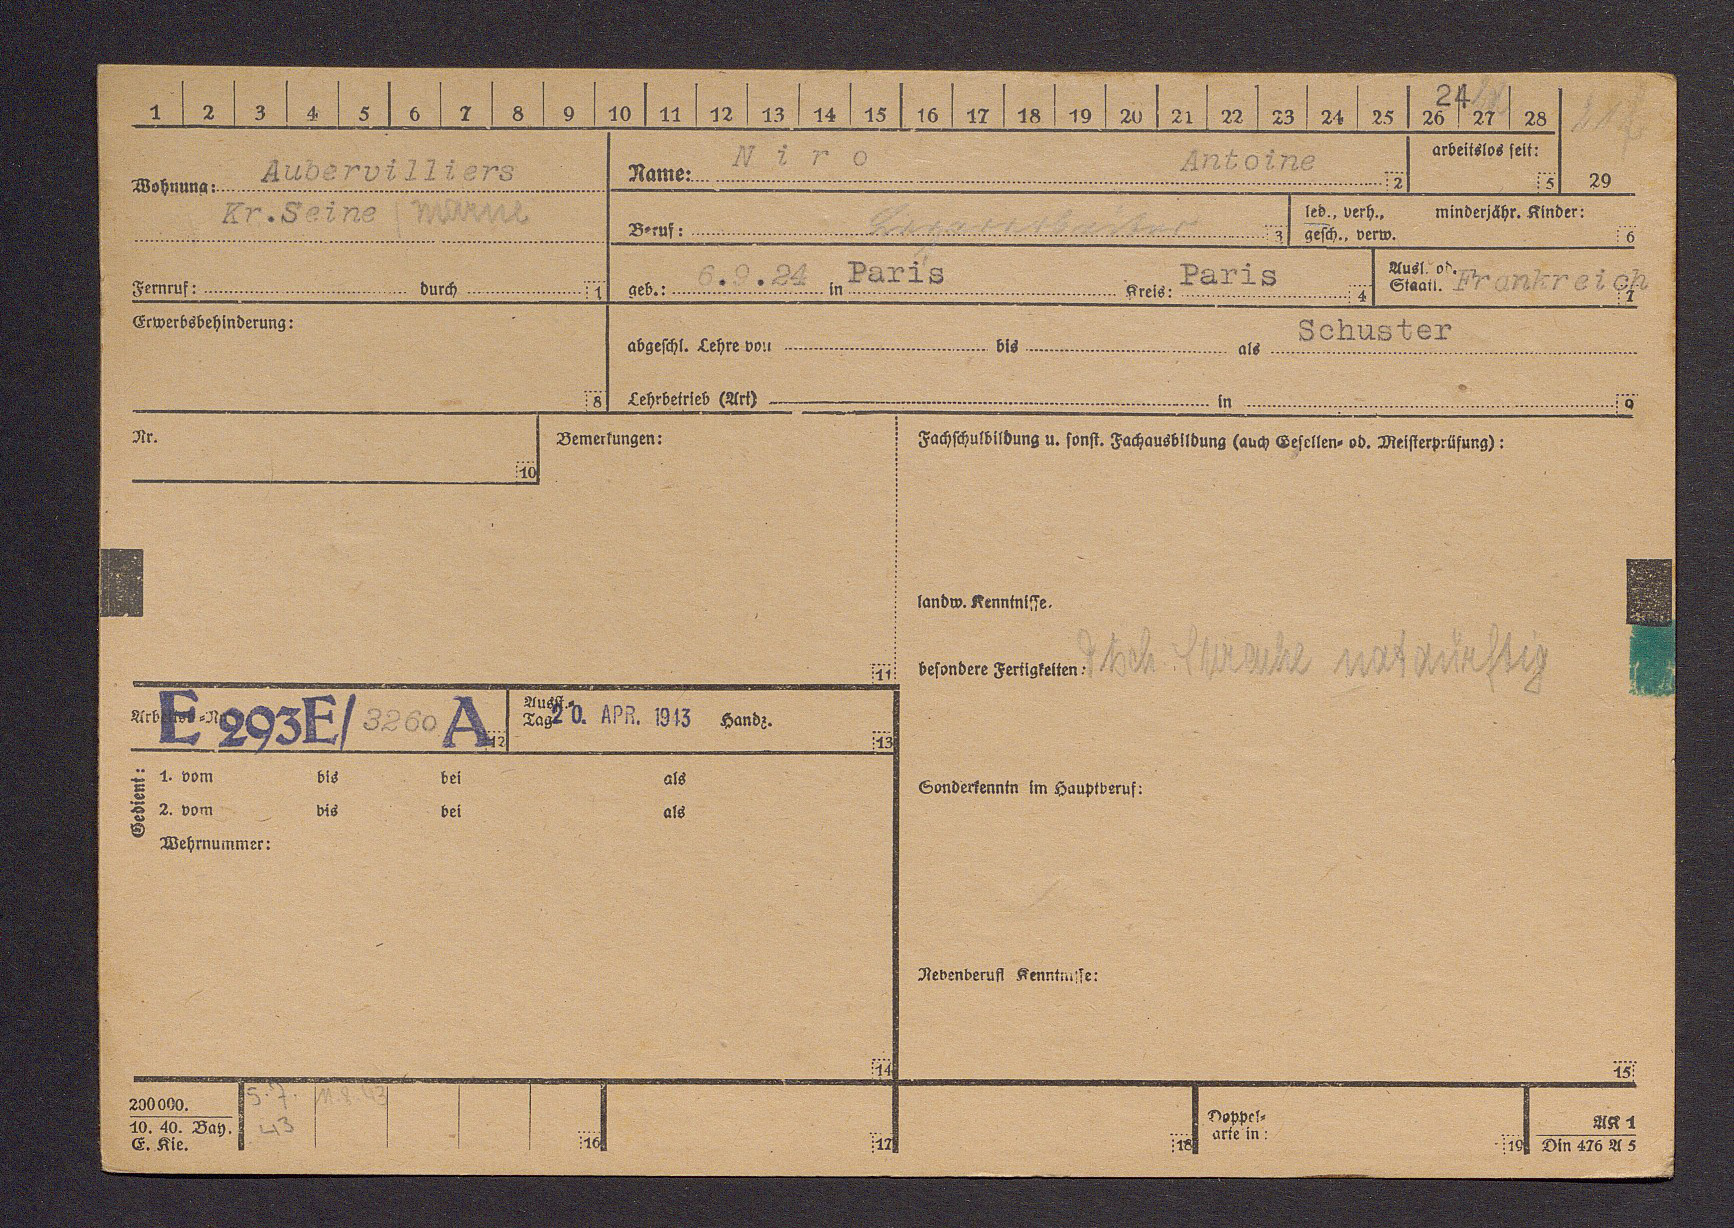 1 2 3 4 5 6 7 8 9 10 11 12 13 14 15 16 17 18 19 20 21 22 23 24 25 26 27 28
24
Wohnung: Aubervilliers
Kr. Seine / Marne
Fernruf: durch 1
Name: Niro Antoine 2
arbeitslos seit: 5
29
Beruf: 3
led., verh., minderjähr. Kinder:
gesch., verw. 6
geb.: 6.9.24 in Paris Kreis: Paris 4
Ausl. od. Staatl. Frankreich 7
Erwerbsbehinderung: 8
abgeschl. Lehre von bis als Schuster
Lehrbetrieb (Art) in 9
Nr. 10
Bemerkungen: 11
Fachschulbildung u. sonst. Fachausbildung (auch Gesellen- od. Meisterprüfung):
landw. Kenntnisse.
besondere Fertigkeiten: Dtsch. Sprache notdürftig
Arbeitsb.-Nr. E 293E/ 3260 A 12
Ausst.-Tag 20. APR. 1943 Handz. 13
Gedient:
1. vom bis bei als
2. vom bis bei als
Wehrnummer:
14
Sonderkenntn im Hauptberuf:
Nebenberufl Kenntnisse:
15
200000.
10. 40. Bay.
E. Kie.
5.7.
43
11.8.43
16
17
18
Doppel-
arte in: 19
AK 1
Din 476 A 5